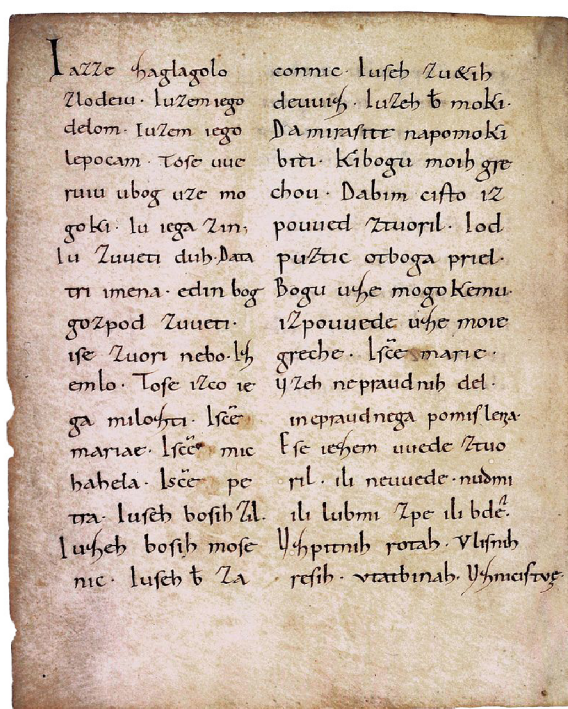 Iazze zaglagolo
zlodeiu. Iuzem iego
delom. Iuzem iego
lepocam. Tose uue
ruiu ubog uze mo
goki. Iu iega zin,
Iu zuueti duh. Data
tri imena. edin bog
gozpod zuueti.
ise zuori nebo. Iz
emlo. Tose izco ie
ga milozti. Iscē
mariae. Iscē mic
hahela. Iscē pe
tra. Iuseh bosih zil.
Iuzeh bosih mose
nic. Iuseh ƀ za
connic. Iuseh zu&ih
deuuiz. Iuzeh ƀ moki.
Da mirasite napomoki
biti. Kibogu moih gre
chou. Dabim cisto iz
pouued ztuoril. Iod
puztic otboga priel.
Bogu uze mogokemu.
izpouuede uze moie
greche. Iscē marie.
Uzeh nepraudnih del.
inepraudnega pomislena.
Ese iezem uuede ztuo
ril. ili neuuede. nudmi
ili lubmi zpe ili bdē.
Uzpitnih rotah. Vlisnih
resih. vtatbinah. Uznicistue.